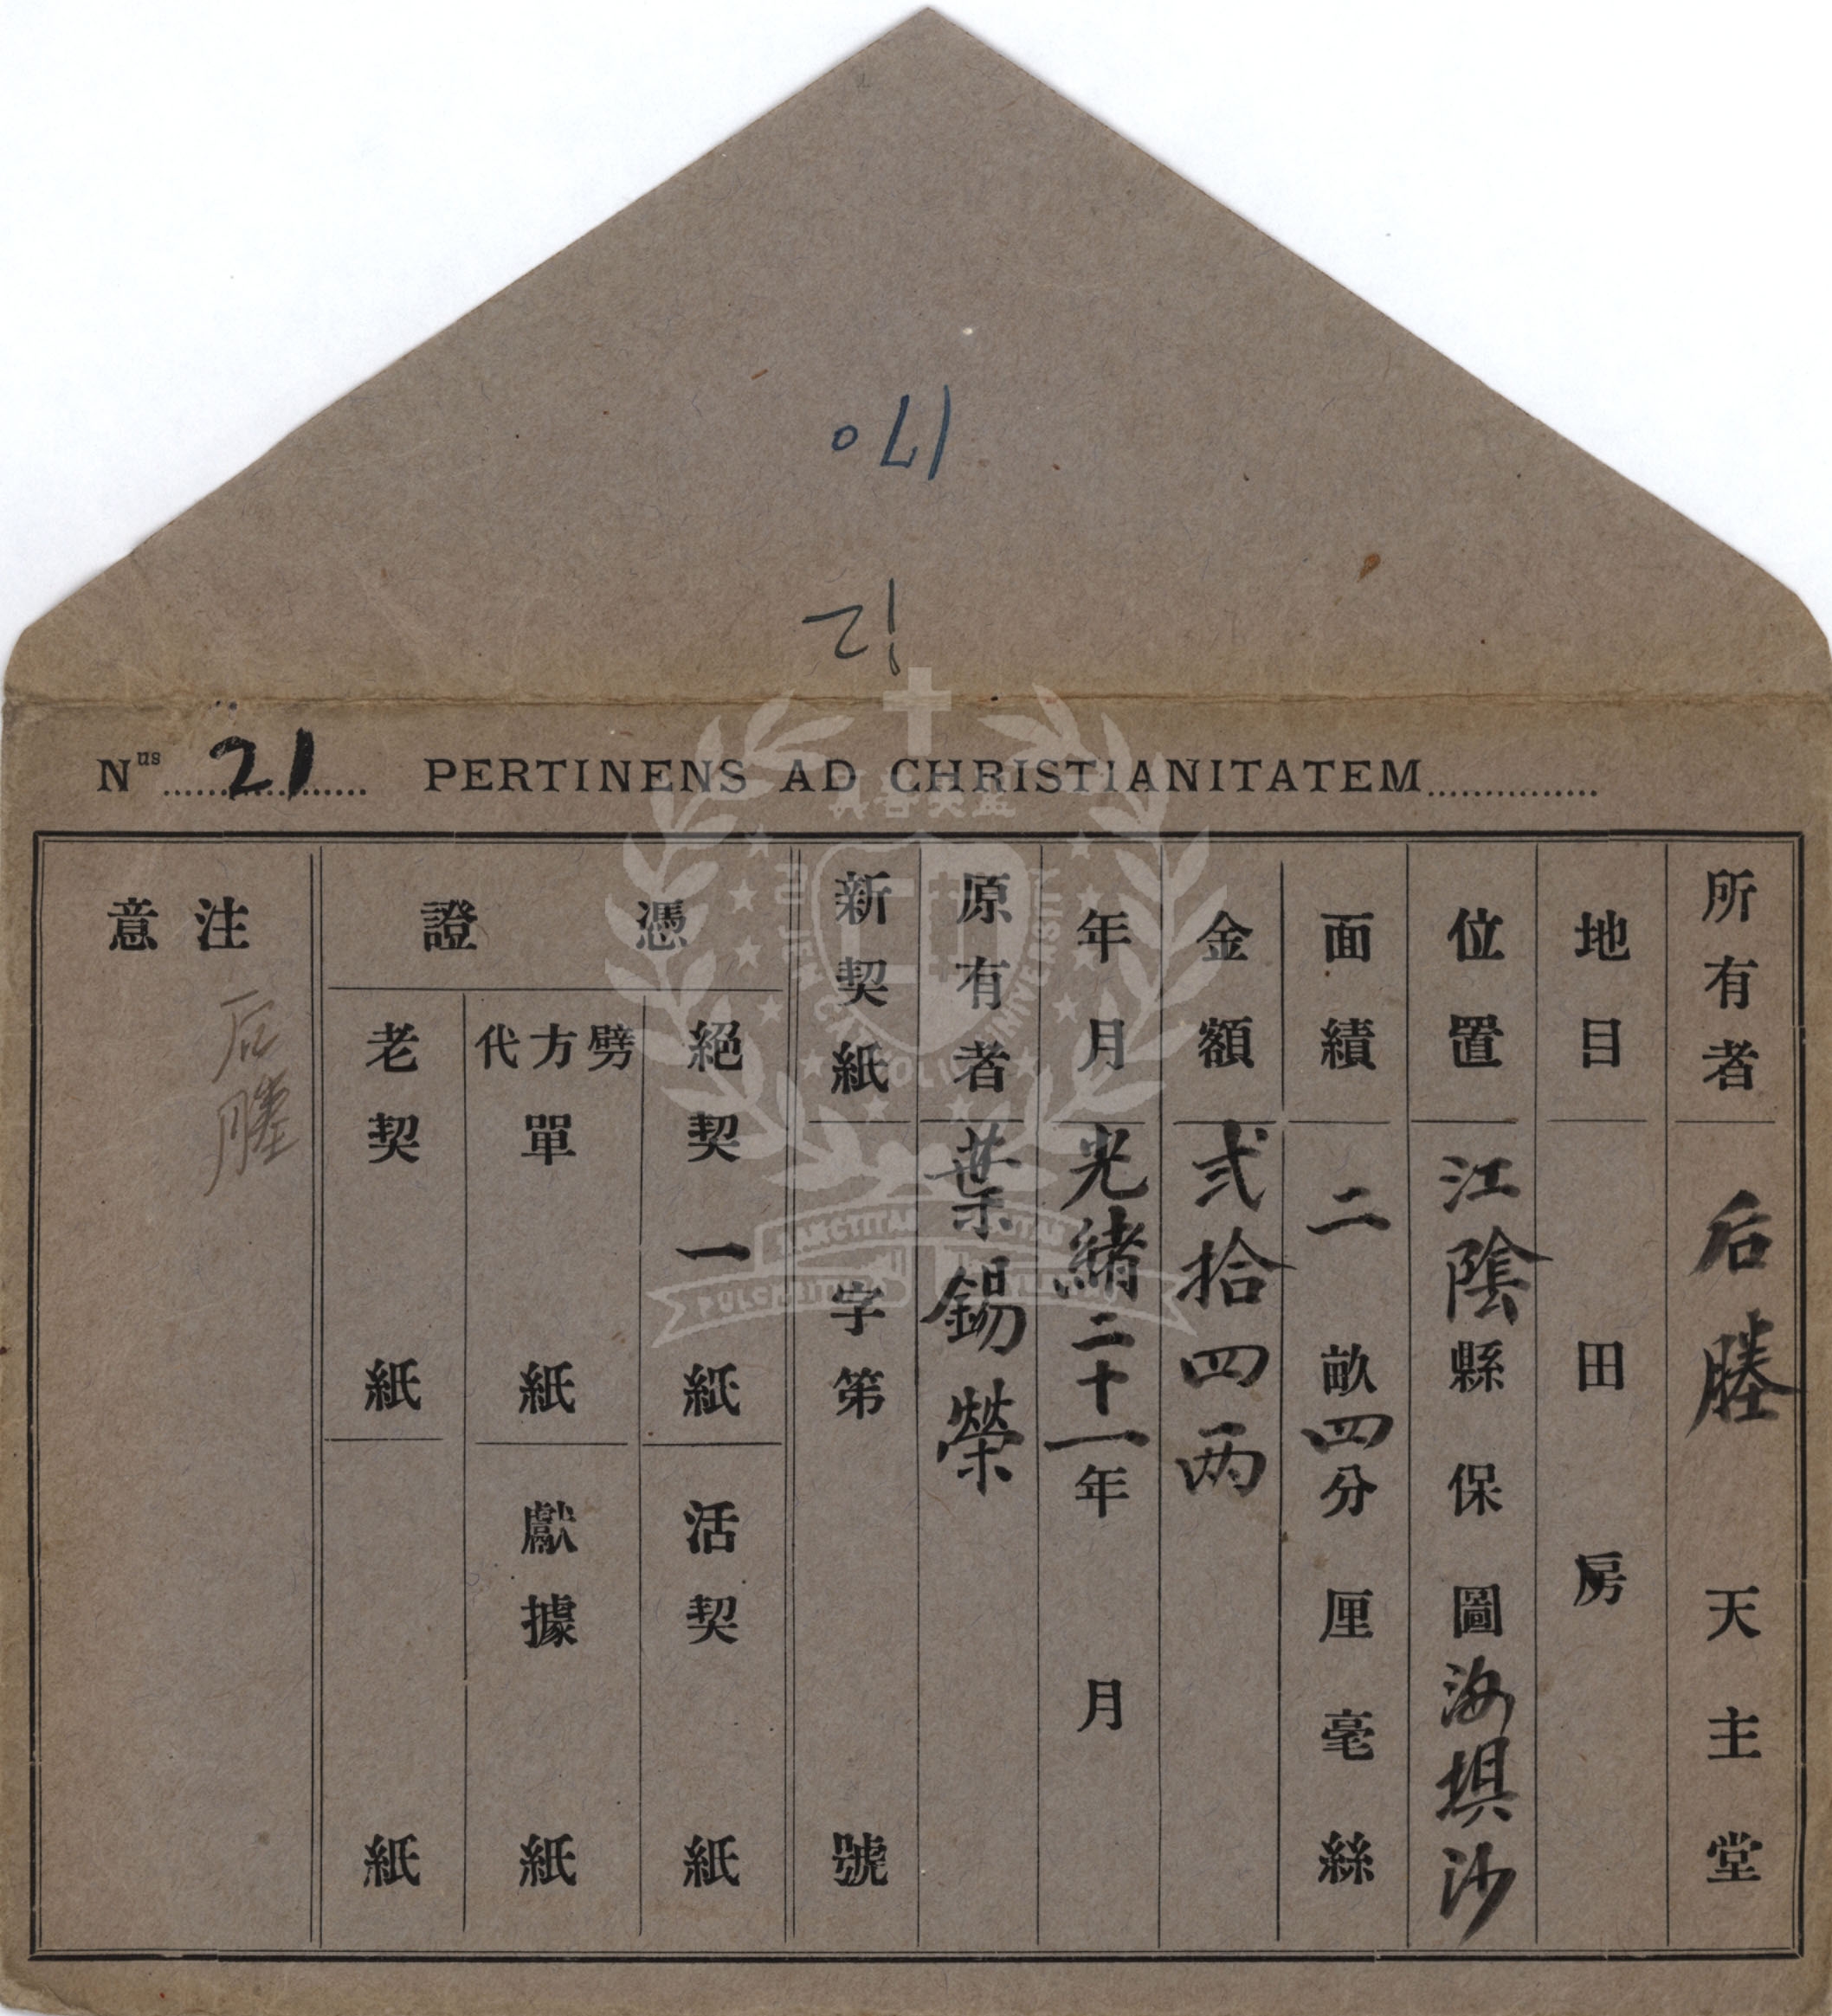 170
12
Nus 21 PERTINENS AD CHRISTIANITATEM
所有者 后塍 天主堂
地目 田 房
位置 江陰縣 保 圖 海埧沙
面績 二畝四分 厘 毫 絲
金額 弍拾四两
年月 光緒二十一年 月
原有者 葉錫榮
新契紙 字第 號
憑證
絕契 一 紙 活契 紙
劈方代單 紙 獻據 紙
老契 紙 紙
注意
后塍